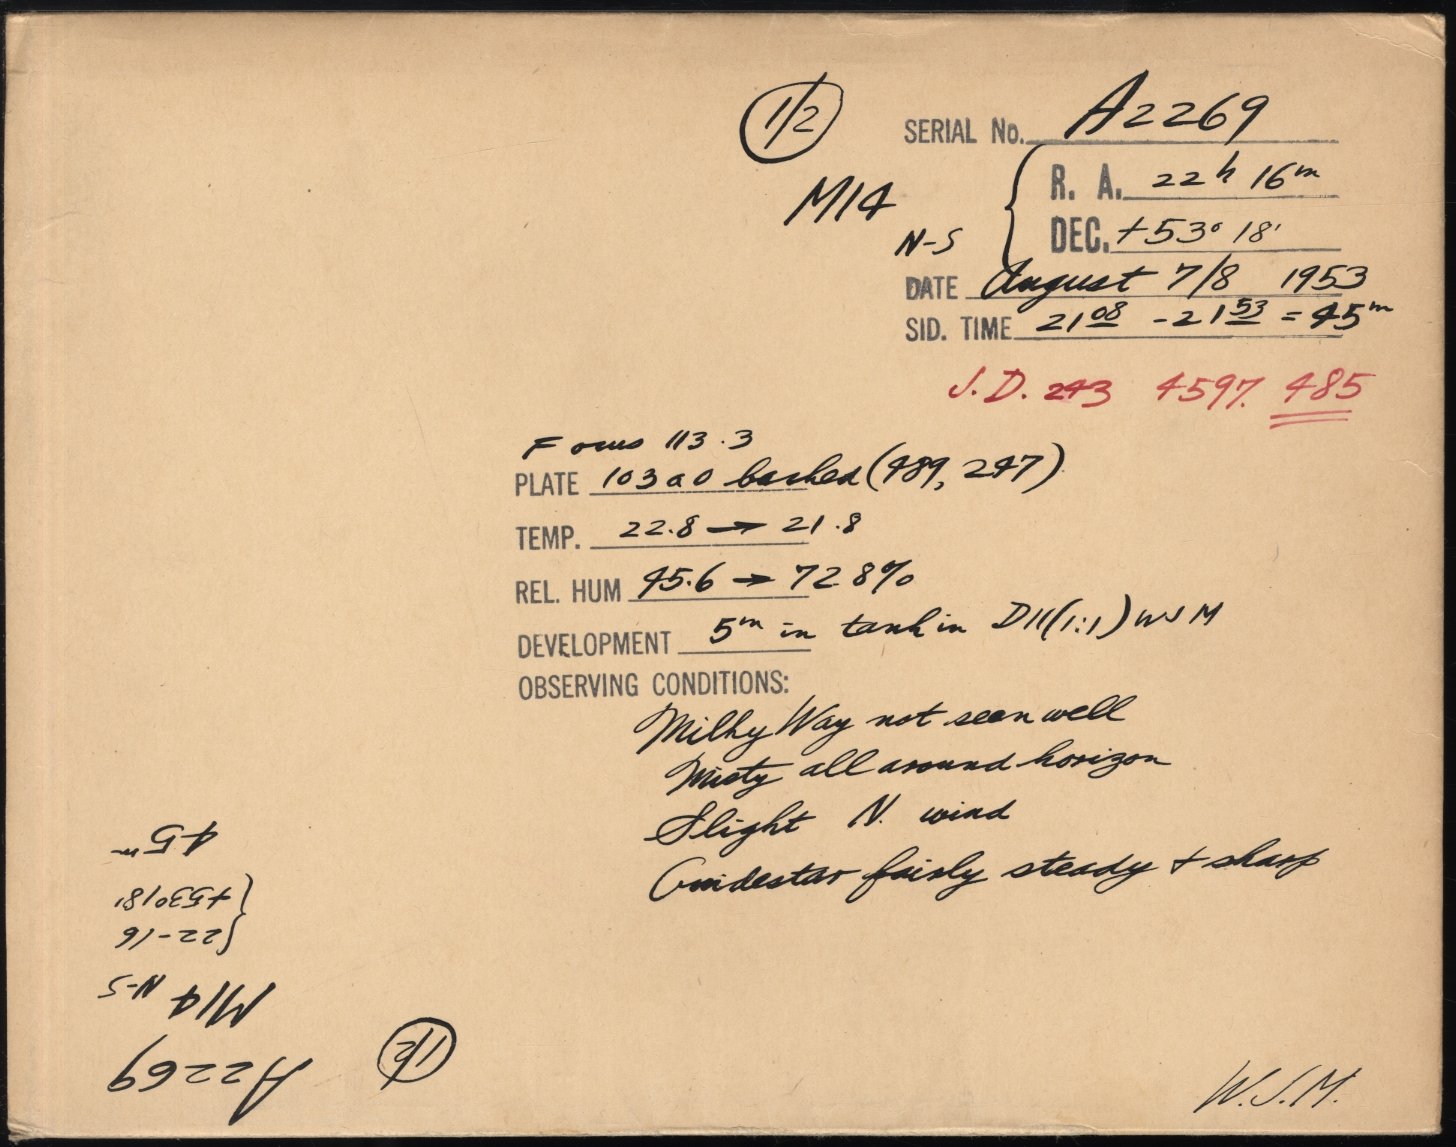 1/2
SERIAL No. A2269
M14
R. A. 22h 16m
N-S
DEC. +53° 18'
DATE August 7/8 1953
SID. TIME 21 08 - 21 53 = 45m
J.D. 243 4597. 485
Focus 113.3
PLATE 103a0 backed (489, 247)
TEMP. 22.8 → 21.8
REL. HUM 45.6 → 72.8%
DEVELOPMENT 5m in tank in D11(1:1) WJM
OBSERVING CONDITIONS:
Milky Way not seen well
Misty all around horizon
Slight N. wind
Guidestar fairly steady + sharp
W.J.M.
1/2
A2269
M14 N-S
22-16
+53°18'
45m